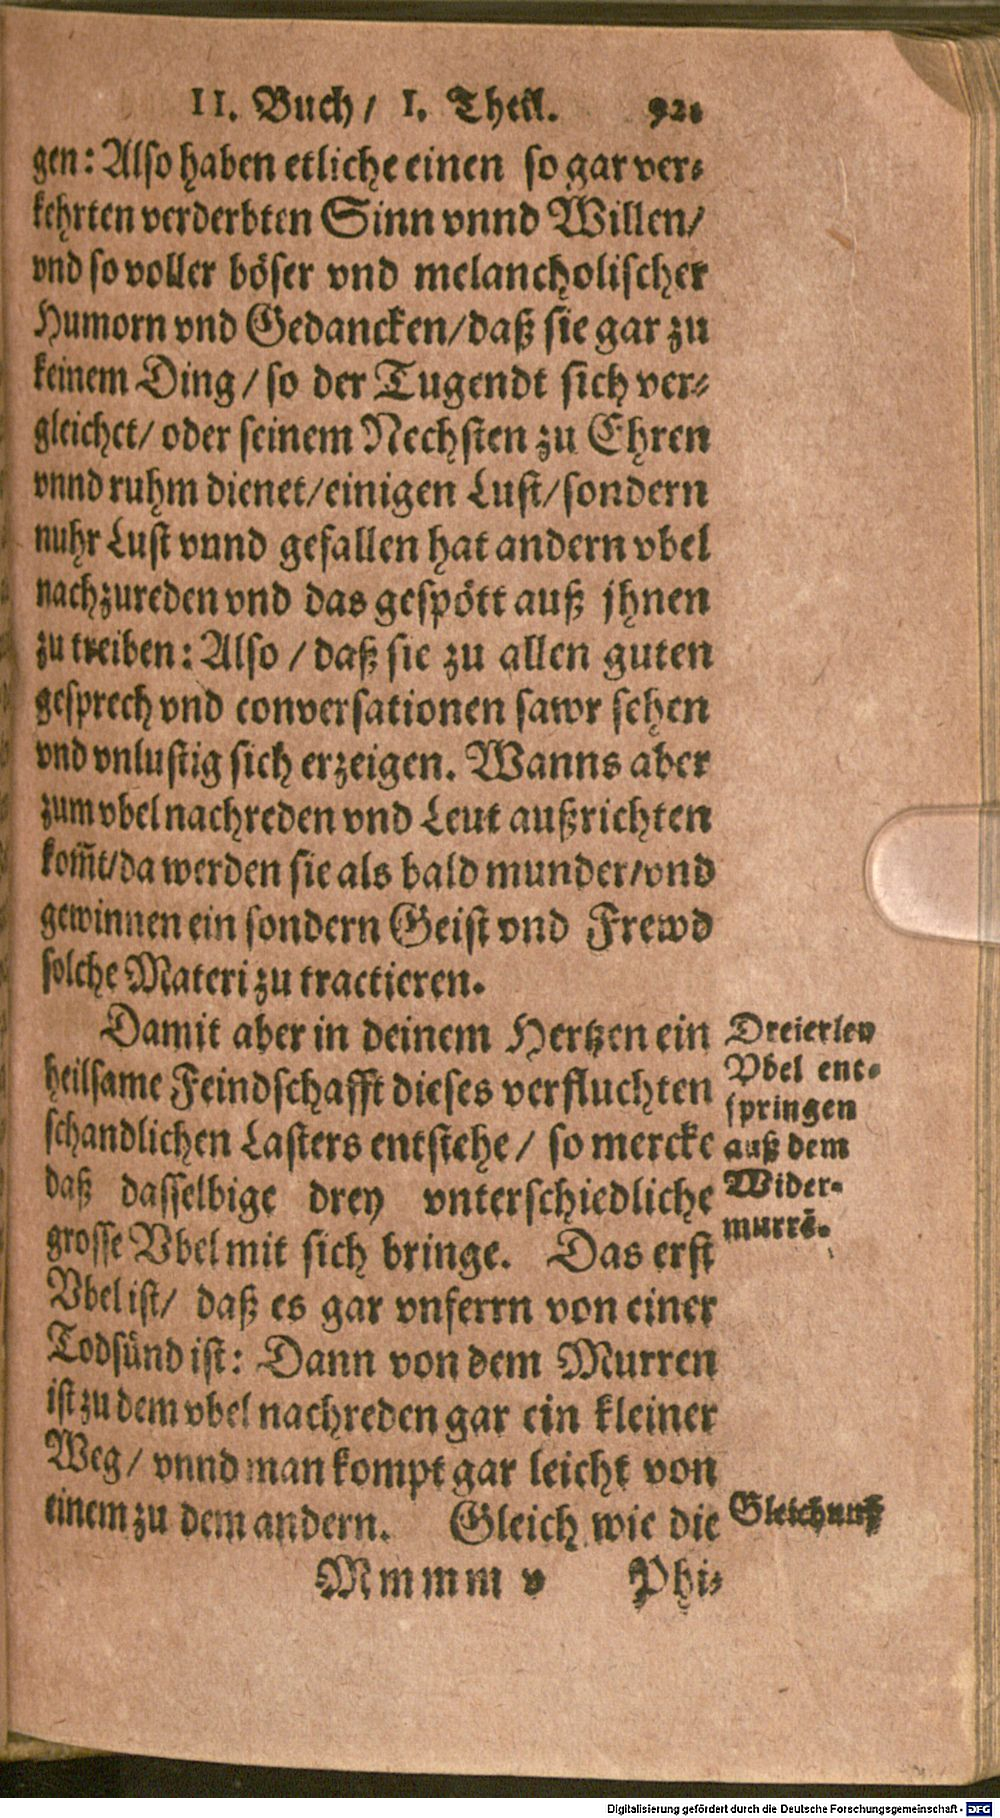 II. Buch/ I. Theil. 921
gen: Also haben etliche einen so gar ver-
kehrten verderbten Sinn vnnd Willen/
vnd so voller böser vnd melancholischer
Humorn vnd Gedancken/daß sie gar zu
keinem Ding/ so der Tugendt sich ver-
gleichet/ oder seinem Nechsten zu Ehren
vnnd ruhm dienet/einigen Lust/sondern
nuhr Lust vnnd gefallen hat andern vbel
nachzureden vnd das gespött auß jhnen
zu treiben: Also/ daß sie zu allen guten
gesprech vnd conversationen sawr sehen
vnd vnlustig sich erzeigen. Wanns aber
zum vbel nachreden vnd Leut außrichten
kom̃t/da werden sie als bald munder/vnd
gewinnen ein sondern Geist vnd Frewd
solche Materi zu tractieren.
Damit aber in deinem Hertzen ein
heilsame Feindschafft dieses verfluchten
schandlichen Lasters entstehe/ so mercke
daß dasselbige drey vnterschiedliche
grosse Vbel mit sich bringe. Das erst
Vbel ist/ daß es gar vnferrn von einer
Todsünd ist: Dann von dem Murren
ist zu dem vbel nachreden gar ein kleiner
Weg/ vnnd man kompt gar leicht von
einem zu dem andern. Gleich wie die
Mmmm v Phi-
Dreierley
Vbel ent-
springen
auß dem
Wider-
murrẽ.
Gleichnuß
Digitalisierung gefördert durch die Deutsche Forschungsgemeinschaft - DFG